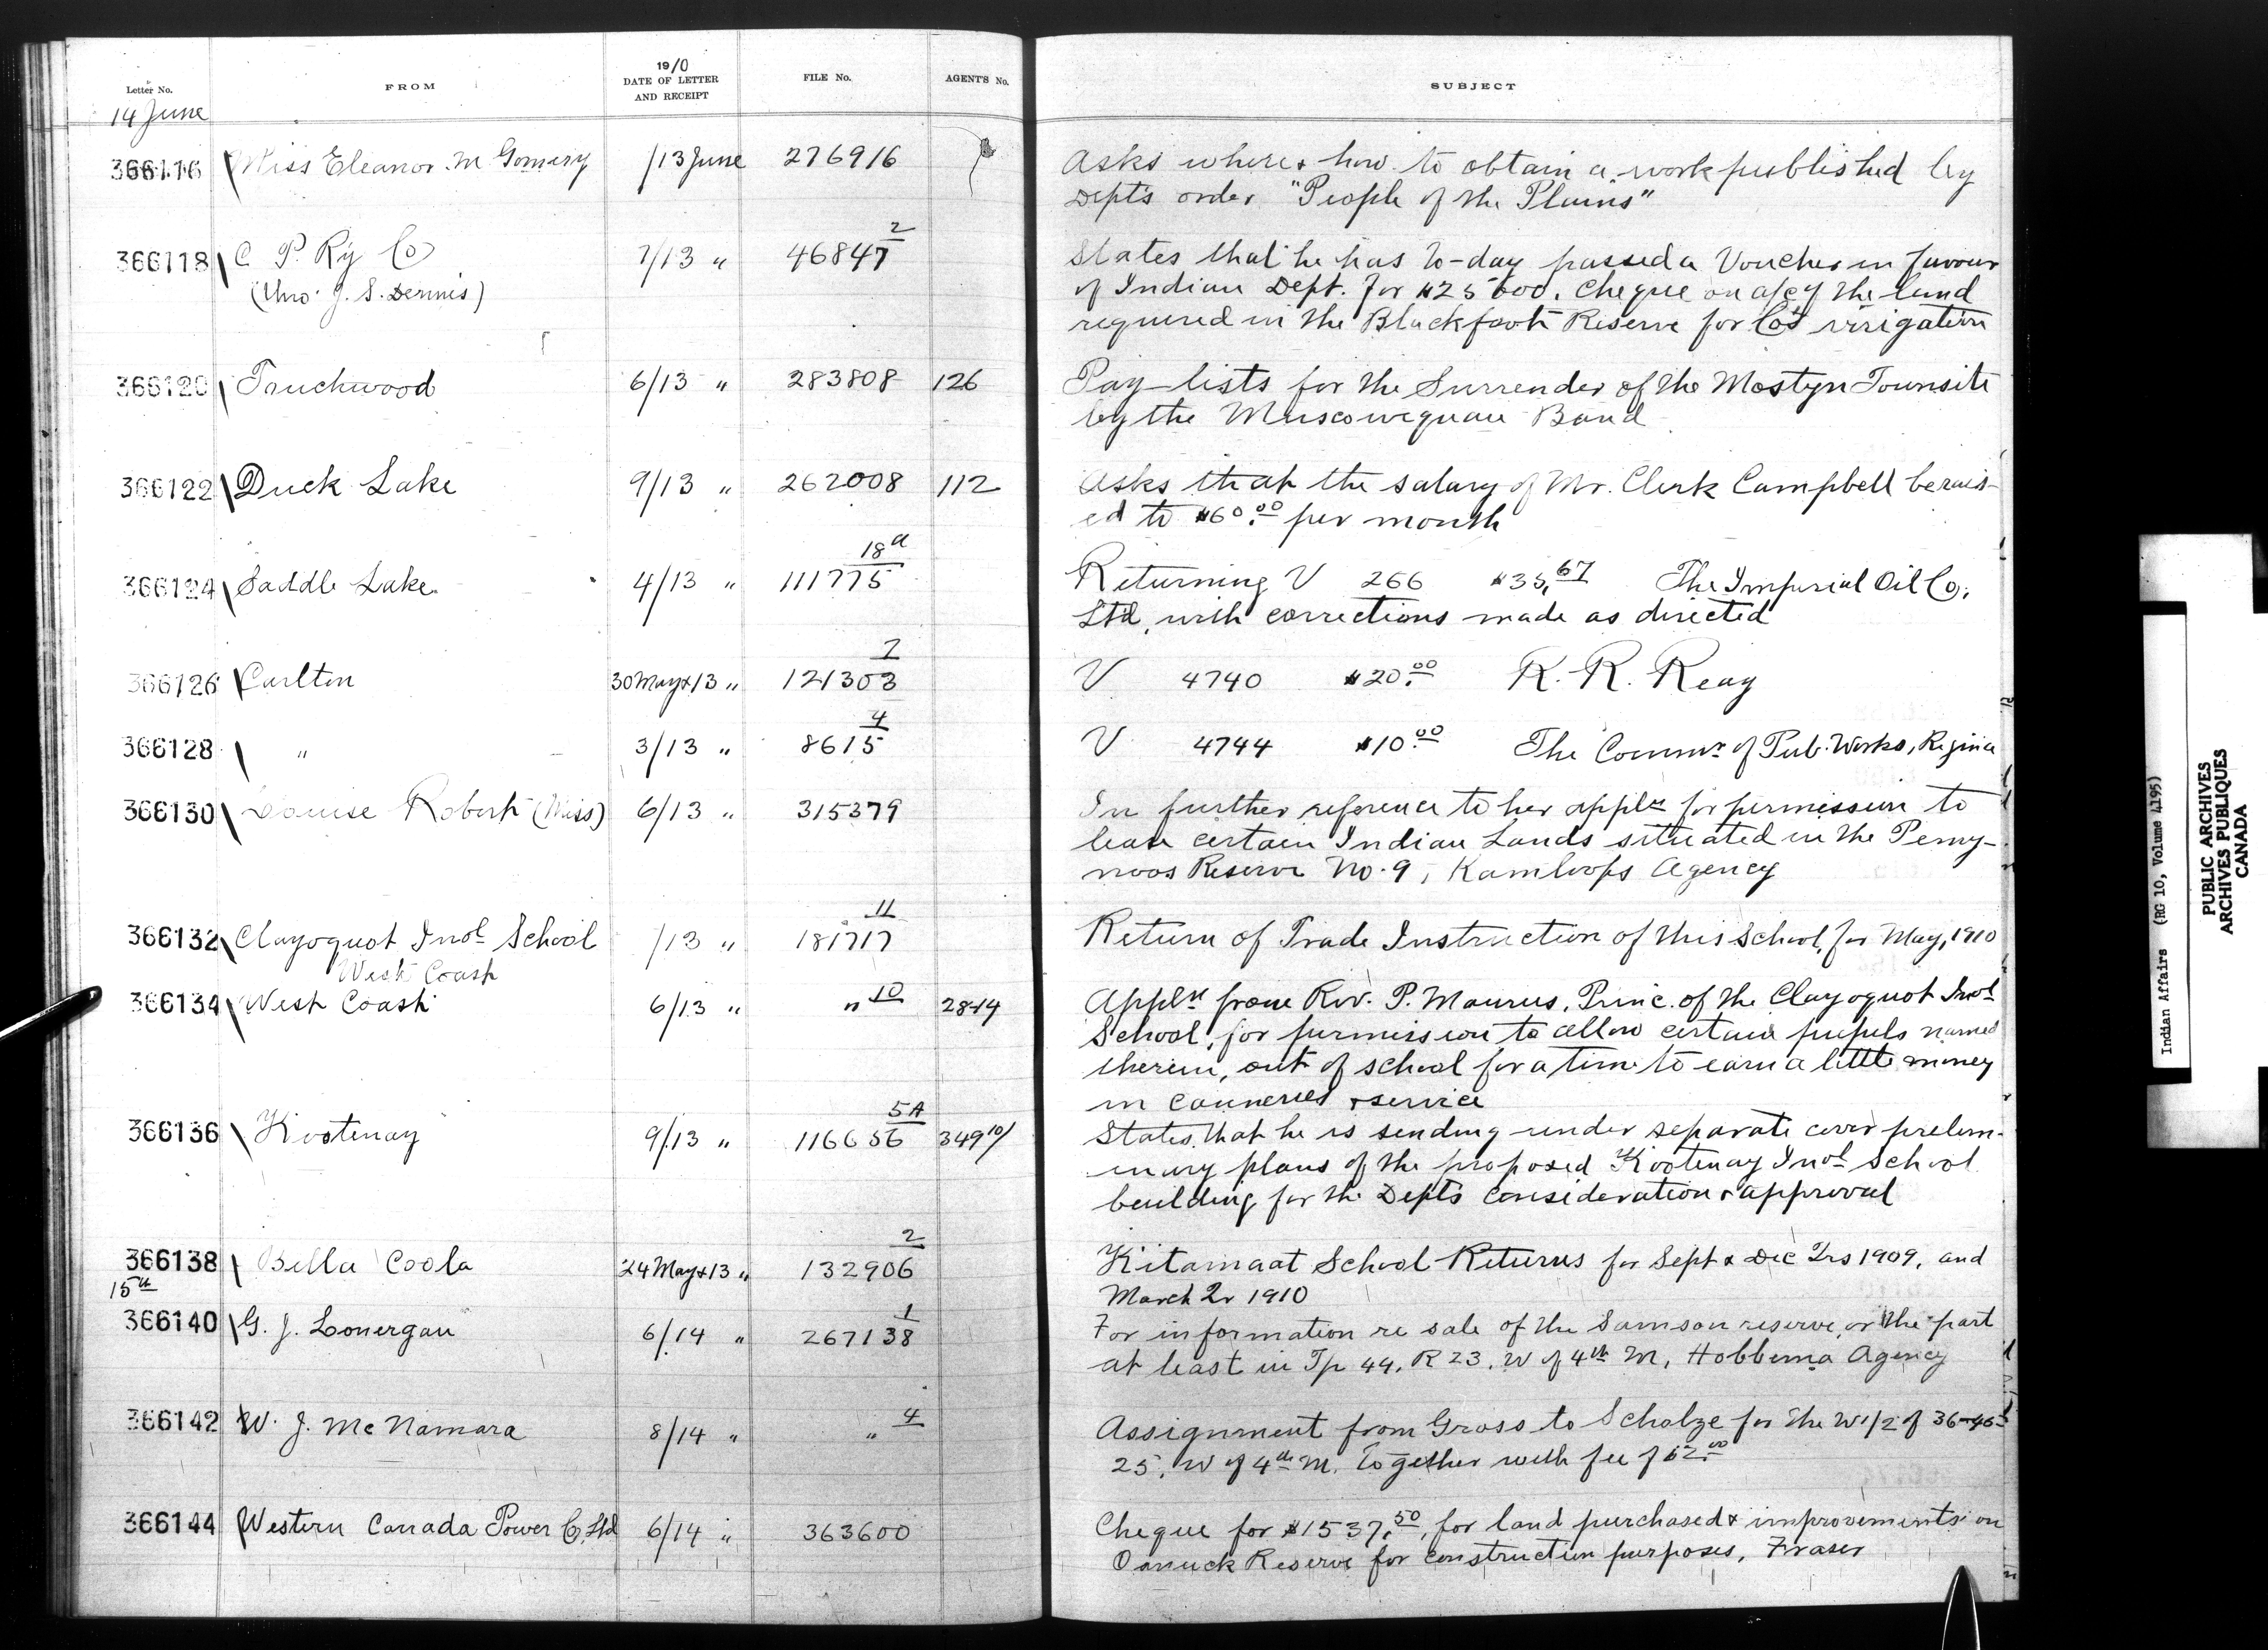 Letter No. FROM 1910 DATE OF LETTER AND RECEIPT FILE No. AGENT'S No. SUBJECT
14 June
366116 Miss Eleanor M Gomery /13 June 276916 Asks where & how to obtain a work published by
Dept's order "People of the Plains"
366118 C P. Ry Co 7/13 " 46847 2 States that he has to-day passed a Voucher in favour
(thro' J. S. Dennis) of Indian Dept. for $25000. Cheque on a/c of the land
required in the Blackfoot Reserve for Co's irrigation
366120 Touchwood 6/13 " 283808 126 Pay-lists for the Surrender of the Mostyn Townsite
by the Muscowequan Band
366122 Duck Lake 9/13 " 262008 112 Asks that the salary of Mr. Clerk Campbell be rais-
ed to $60.00 per month
366124 Saddle Lake 4/13 " 111775 18a Returning V 266 $35.67 The Imperial Oil Co.
Ltd, with corrections made as directed
366126 Carlton 30 May & 13 " 121303 7 V 4740 $20.00 R. R. Reay
366128 " 3/13 " 8615 4 V 4744 $10.00 The Commr of Pub. Works, Regina
366130 Louise Robert (Miss) 6/13 " 315379 In further reference to her appln for permission to
lease certain Indian Lands situated in the Pemy-
noos Reserve No. 9, Kamloops Agency
366132 Clayoquot Indl School /13 " 181717 11 Return of Trade Instruction of this School, for May, 1910
West Coast
366134 West Coast 6/13 " " 10 28-14 Appln from Rev. P. Maurus, Princ. of the Clayoquot Indl
School, for permission to allow certain pupils named
therein, out of school for a time to earn a little money
in canneries & service
366136 Kootenay 9/13 " 116656 5A 349 10/ States that he is sending under separate cover prelim-
inary plans of the proposed Kootenay Indl School
building for the Dept's consideration & approval
366138 Bella Coola 24 May & 13 " 132906 2 Kitamaat School Returns for Sept & Dec Qrs 1909, and
March Qr 1910
15th
366140 G. J. Lonergan 6/14 " 267138 1 For information re sale of the Samson reserve, or the part
at least in Tp 44, R 23, W of 4th M, Hobbema Agency
366142 W. J. McNamara 8/14 " " 4 Assignment from Gross to Scholze for the W 1/2 of 36-46-
25, W of 4th M. together with fee of $2.00
366144 Western Canada Power Co. Ltd 6/14 " 363600 Cheque for $1537.50, for land purchased & improvements on
Reserve for construction purposes, Fraser
Indian Affairs (RG 10, Volume 4195)
PUBLIC ARCHIVES
ARCHIVES PUBLIQUES
CANADA